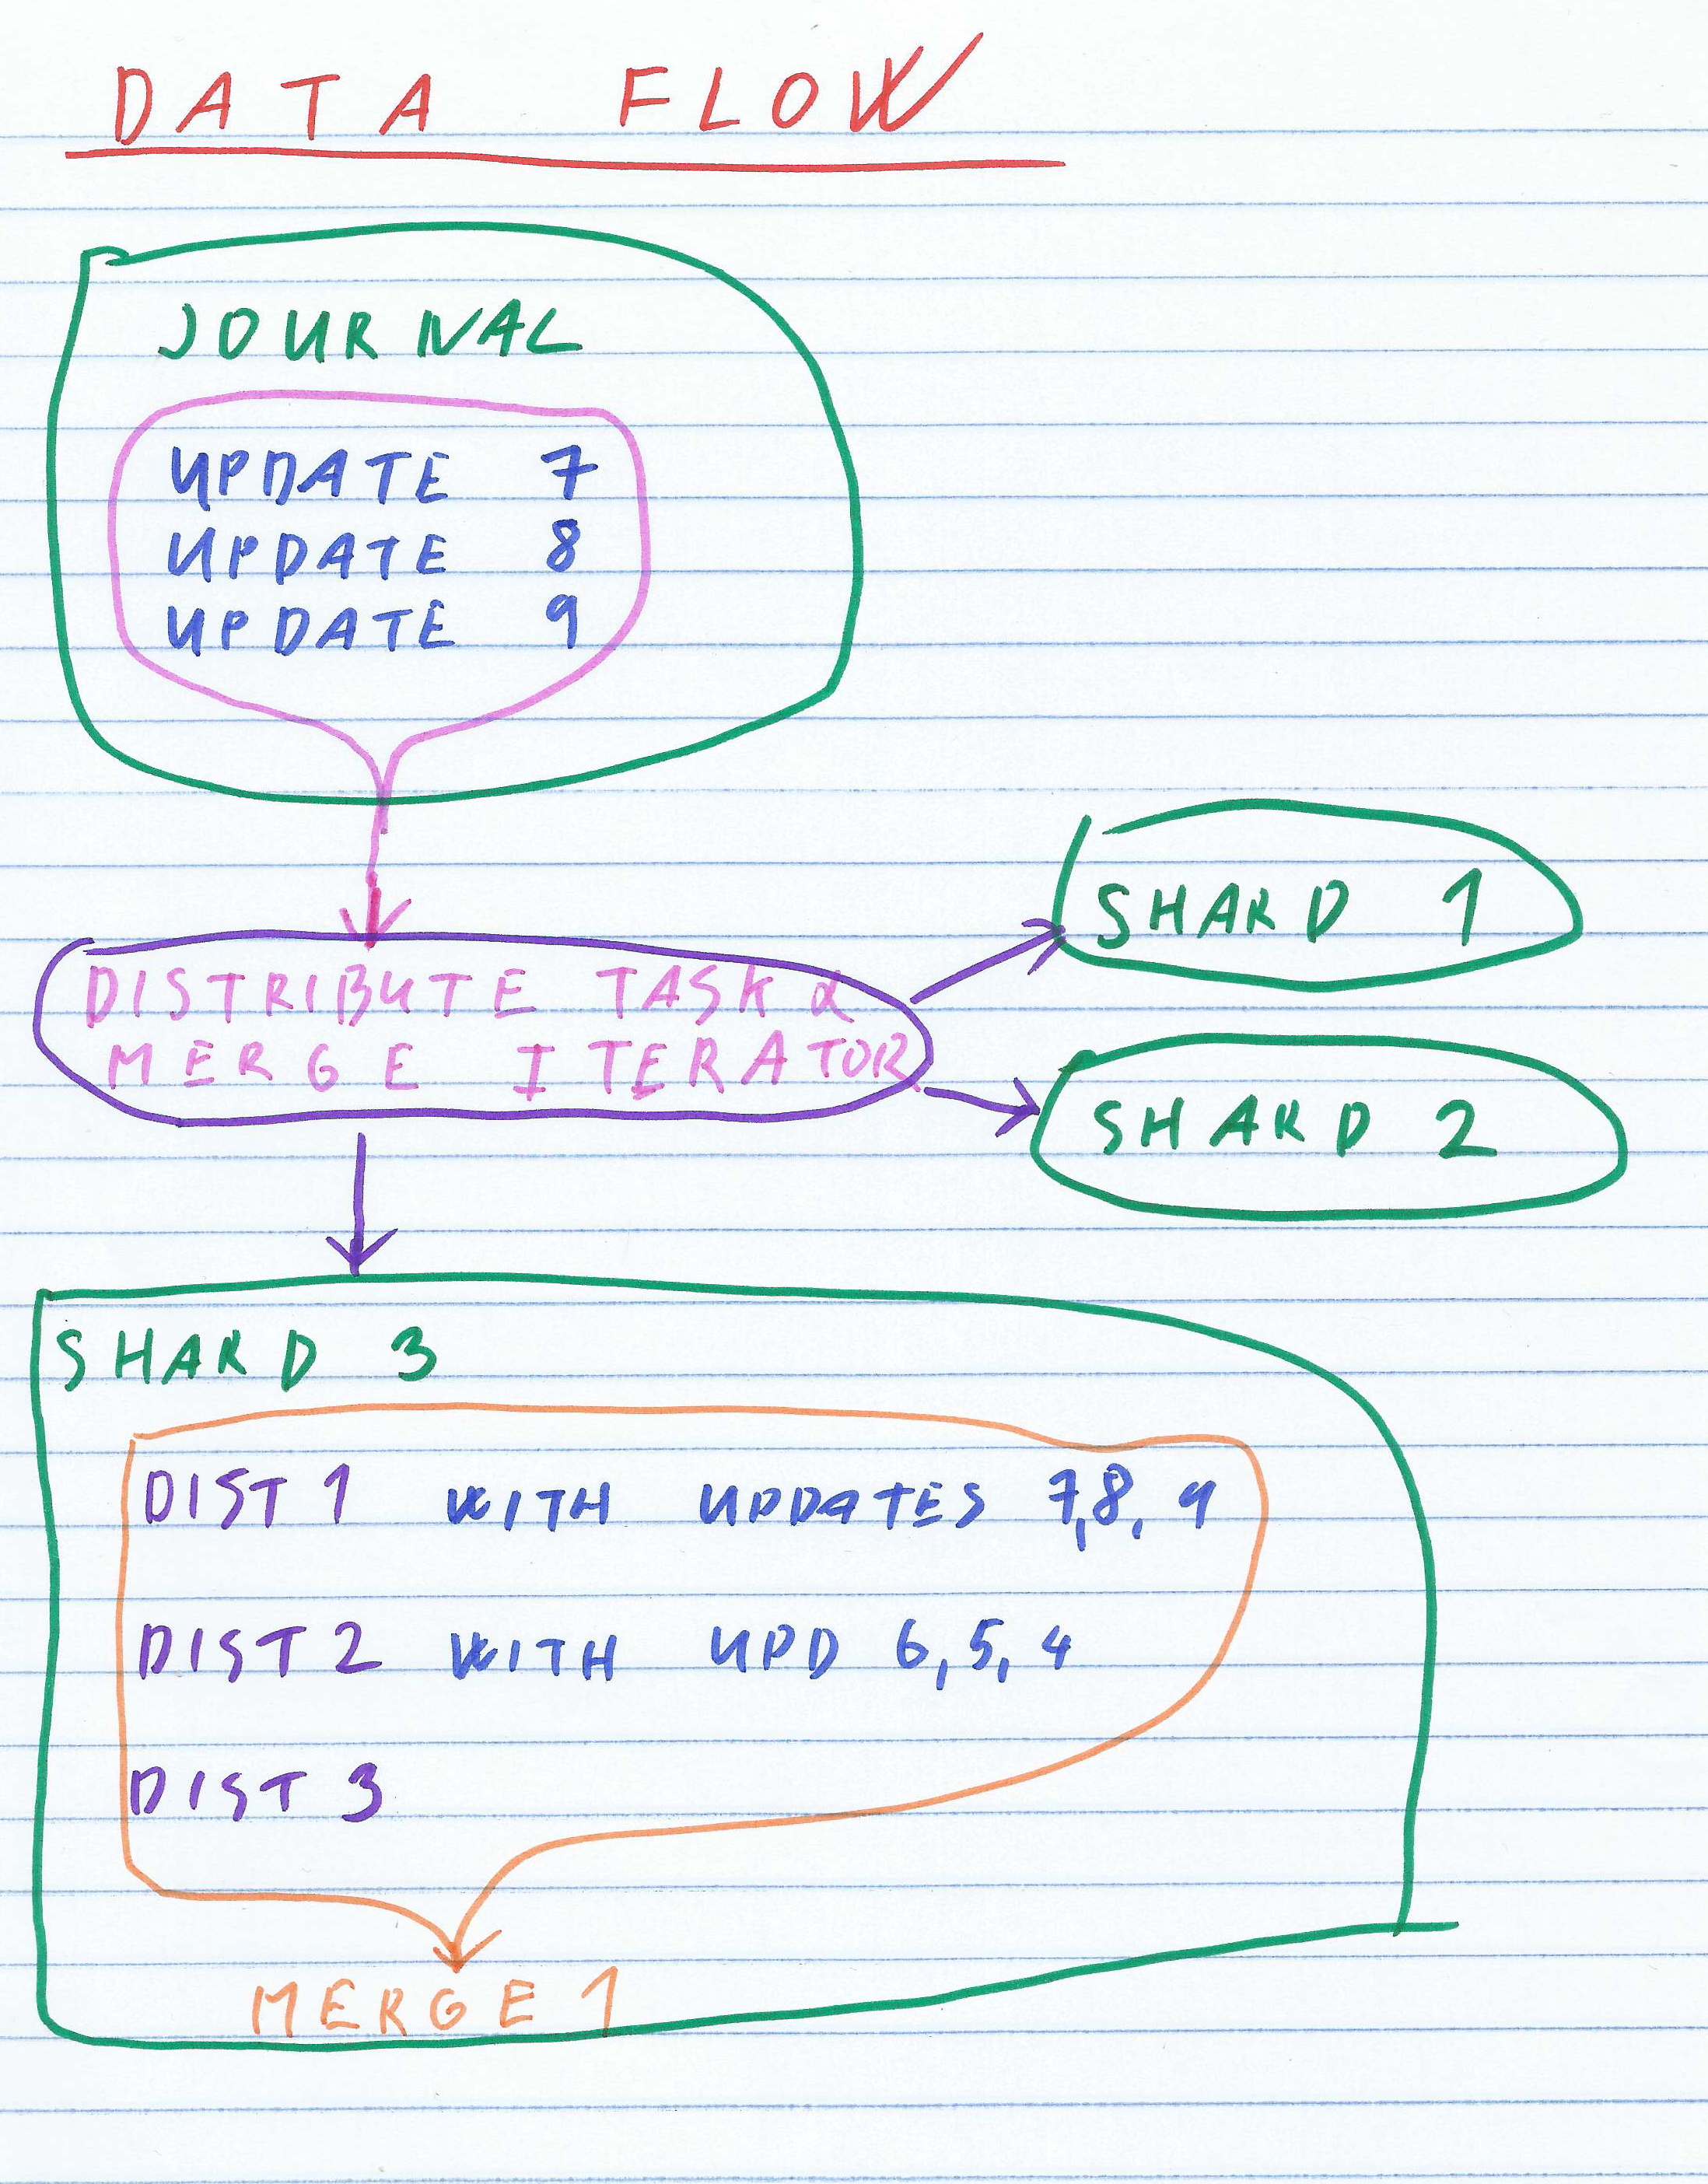 DATA FLOW
JOURNAL
UPDATE 7
UPDATE 8
UPDATE 9
DISTRIBUTE TASK &
MERGE ITERATOR
SHARD 1
SHARD 2
SHARD 3
DIST 1 WITH UPDATES 7,8,9
DIST 2 WITH UPD 6,5,4
DIST 3
MERGE 1